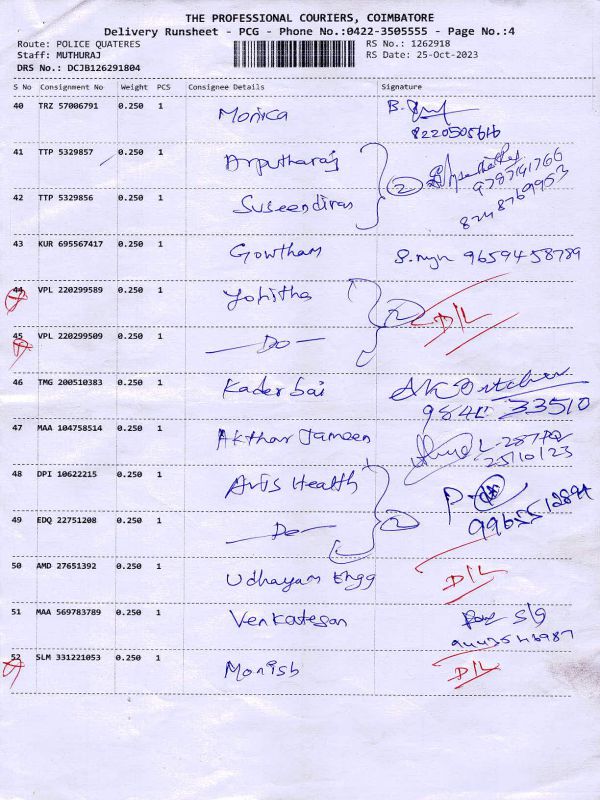 THE PROFESSIONAL COURIERS, COIMBATORE
Delivery Runsheet - PCG - Phone No.:0422-3505555 - Page No.:4
Route: POLICE QUATERES RS No.: 1262918
Staff: MUTHURAJ RS Date: 25-Oct-2023
DRS No.: DCJB126291804
S No Consignment No Weight PCS Consignee Details Signature
40 TRZ 57006791 0.250 1 Monica
8220505616
41 TTP 5329857 0.250 1 Arputharaj
2 9787141766
42 TTP 5329856 0.250 1 Suseendiran 8248769953
43 KUR 695567417 0.250 1 Gowtham 9659458789
44 VPL 220299589 0.250 1 Yohitha
2 D/L
45 VPL 220299509 0.250 1 Do
46 TMG 200510383 0.250 1 Kader bai
33510
47 MAA 104758514 0.250 1 Akthar Jameen
25/10/23
48 DPI 10622215 0.250 1 Avis Health
2
49 EDQ 22751208 0.250 1 Do
50 AMD 27651392 0.250 1 Udhayam Engg D/L
51 MAA 569783789 0.250 1 Venkatesan S/g
9443546987
52 SLM 331221053 0.250 1 Monish D/L